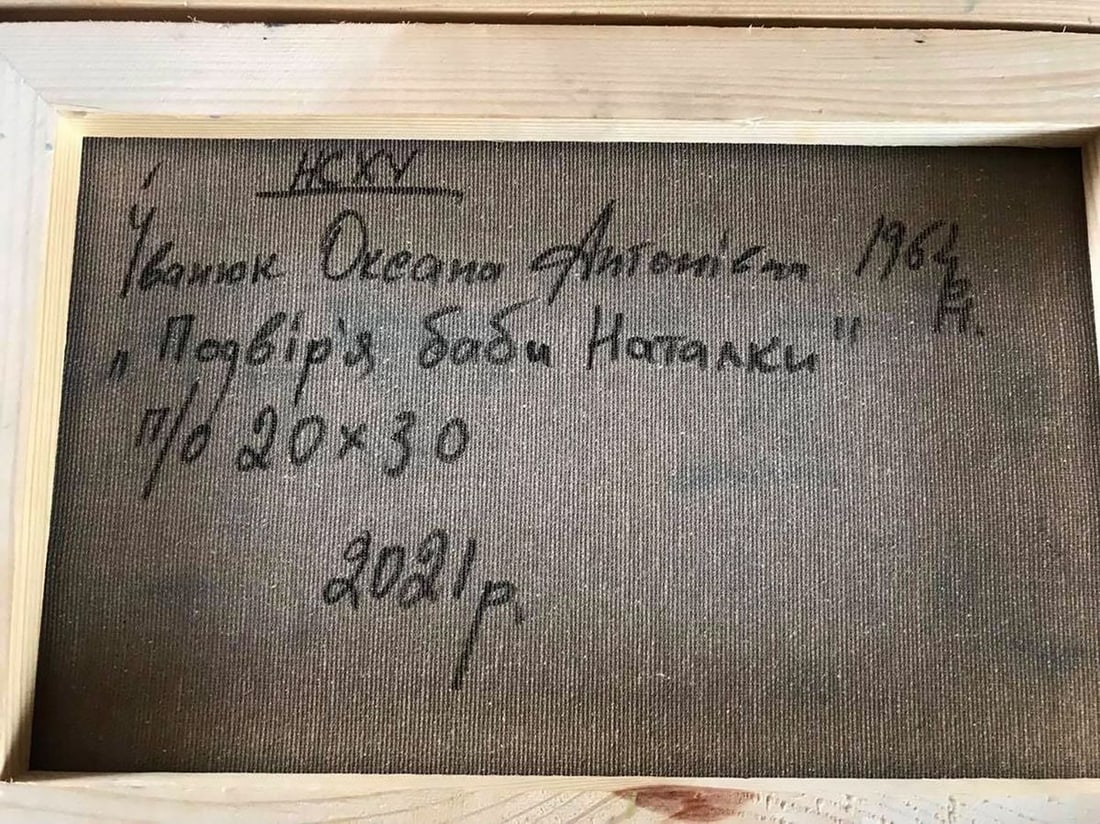 НСХУ
Іванюк Оксана Антонівна 1964 р.н.
„Подвір'я баби Наталки"
п/о 20х30
2021р.